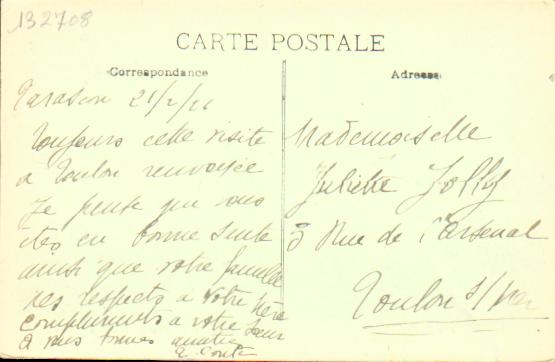 132708
CARTE POSTALE
Correspondance
Adresse
Tarascon 21/2/21
Toujours cette visite
a Toulon renvoyée
Je pense que vous
êtes en bonne santé
ainsi que votre famille
mes respects a votre Mère
compliments a votre Sœur
a vous bonnes amitiés
Mademoiselle
Juliette Jolly
3 Rue de l'Arsenal
Toulon s/ mer